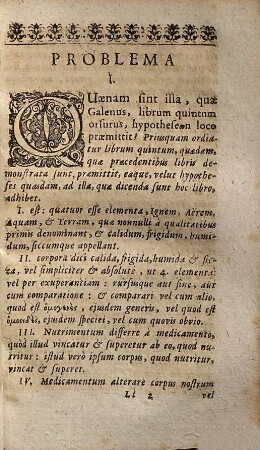 PROBLEMA
I.
QUænam sint illa, quæ
Galenus, librum quintum
orsurus, hypotheseωn loco
præmittit? Priusquam ordia-
tur librum quintum, quædam,
quæ præcedentibus libris de-
monstrata sunt, præmittit, eaque, velut hypothe-
ses quasdam, ad illa, quæ dicenda sunt hoc libro,
adhibet.
I. est: quatuor esse elementa, Ignem, Aërem,
Aquam, & Terram, quæ nonnulli à qualitatibus
primis denominant, & calidum, frigidum, humi-
dum, siccumque appellant.
II. corpora dici calida, frigida, humida & sic-
ca, vel simpliciter & absolutè, ut 4. elementa:
vel per exuperantiam: rursusque aut sinc, aut
cum comparatione: & comparari vel cum alio,
quod est ὁμογενὲς, ejusdem generis, vel quod est
ὁμοειδὲς, ejusdem speciei, vel cum quovis obvio.
III. Nutrimentum differre à medicamento,
quòd illud vincatur & superetur ab eo, quod nu-
tritur: istud verò ipsum corpus, quod nutritur,
vincat & superet.
IV. Medicamentum alterare corpus nostrum
Ll 2 vel